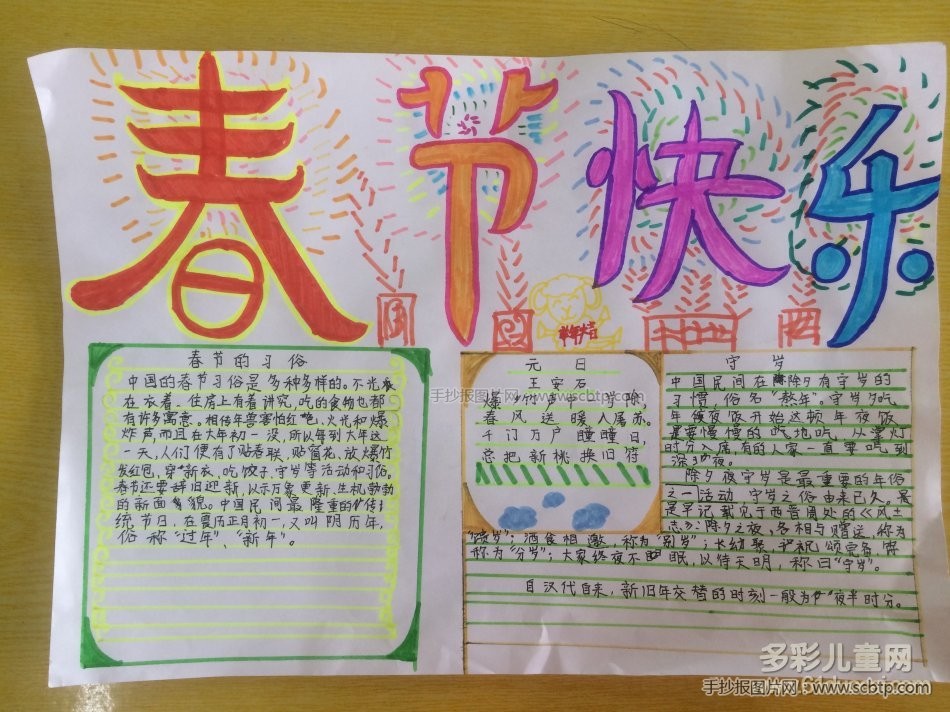 春节快乐
羊年大吉
春节的习俗
中国的春节习俗是多种多样的。不光
在衣着、住房上有着讲究,吃的食物也都
有许多寓意。相传年兽害怕红色、火光和爆
炸声,而且在大年初一没,所以每到大年这
一天,人们便有了贴春联、贴窗花、放爆竹
发红包,穿新衣、吃饺子、守岁等活动和习俗。
春节还要辞旧迎新,以示万象更新、生机勃勃
的新面貌。中国民间最隆重的传
统节日,在夏历正月初一,又叫阴历年,
俗称“过年”、“新年”。
元日
王安石
爆竹声中一岁除,
春风送暖入屠苏。
千门万户曈曈日,
总把新桃换旧符
守岁
中国民间在除夕有守岁的
习惯,俗名“熬年”。守岁从吃
年夜饭开始这顿年夜饭
是要慢慢的吃地吃,从掌灯
时分入席,有的人家一直要吃到
深夜。
除夕夜守岁是最重要的年俗
之一活动 守岁之俗由来已久,最
是早记载见于西晋周处的《风土
志》:除夕之夜,各相与赠送,称为
酒食相邀,称为“别岁”;长幼聚
称为“分岁”;大家终夜不眠,以待天明,称曰“守岁”。
自汉代自来,新旧年交替的时刻一般为夜半时分。
手抄报图片网 www.scbtp.com
多彩儿童网
手抄报图片网:www.scbtp.com